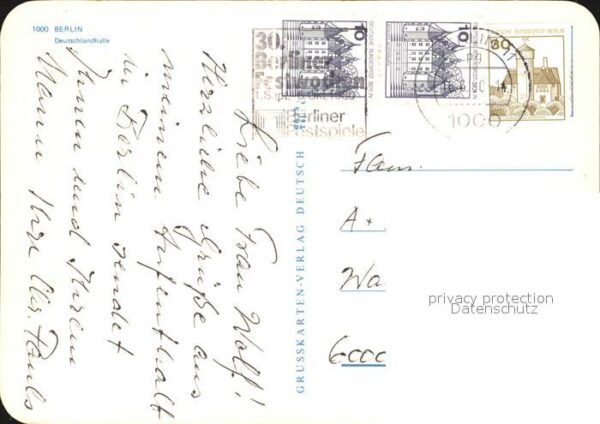 1000 BERLIN
Deutschlandhalle
30.
Berliner
Festwochen
Berliner
Festspiele
10
DEUTSCHE BUNDESPOST BERLIN
10
DEUTSCHE BUNDESPOST BERLIN
30
DEUTSCHE BUNDESPOST BERLIN
BERLIN
1000
Liebe Frau Wolf!
Herzliche Grüße aus
meinem Aufenthalt
in Berlin sendet
Ihnen und Ihrem
Mann Ihre
GRUSSKARTEN-VERLAG DEUTSCH
Fam.
A+
Wa
6000
privacy protection
Datenschutz